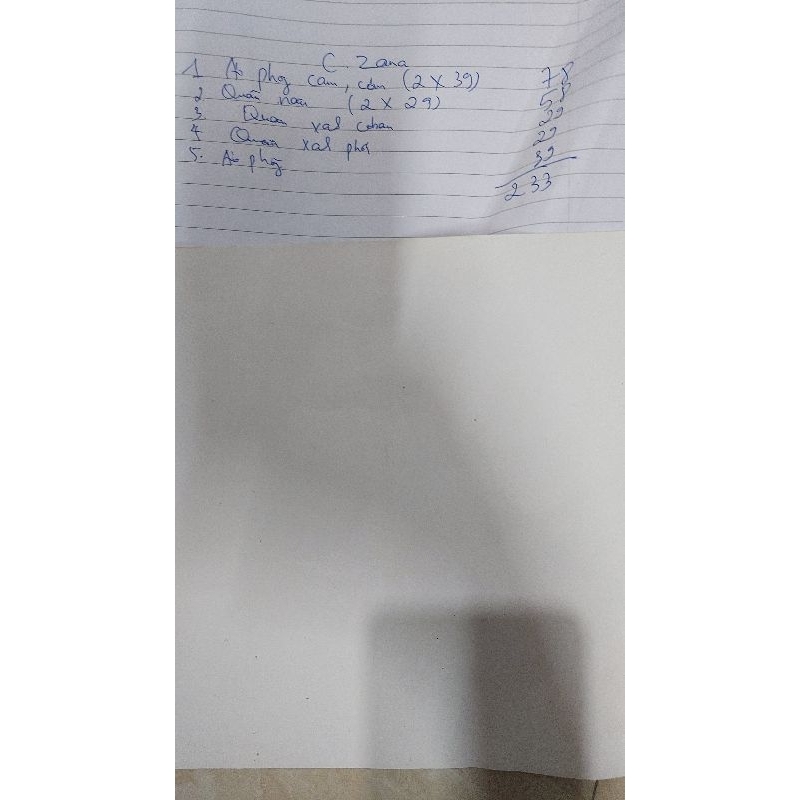 C. Zana
1 Áo phog cam, cám (2 x 39) 78
2 Quần nau (2 x 29) 58
3 Quần xal coban 29
4 Quần xal phơi 29
5. Áo phog 39
233